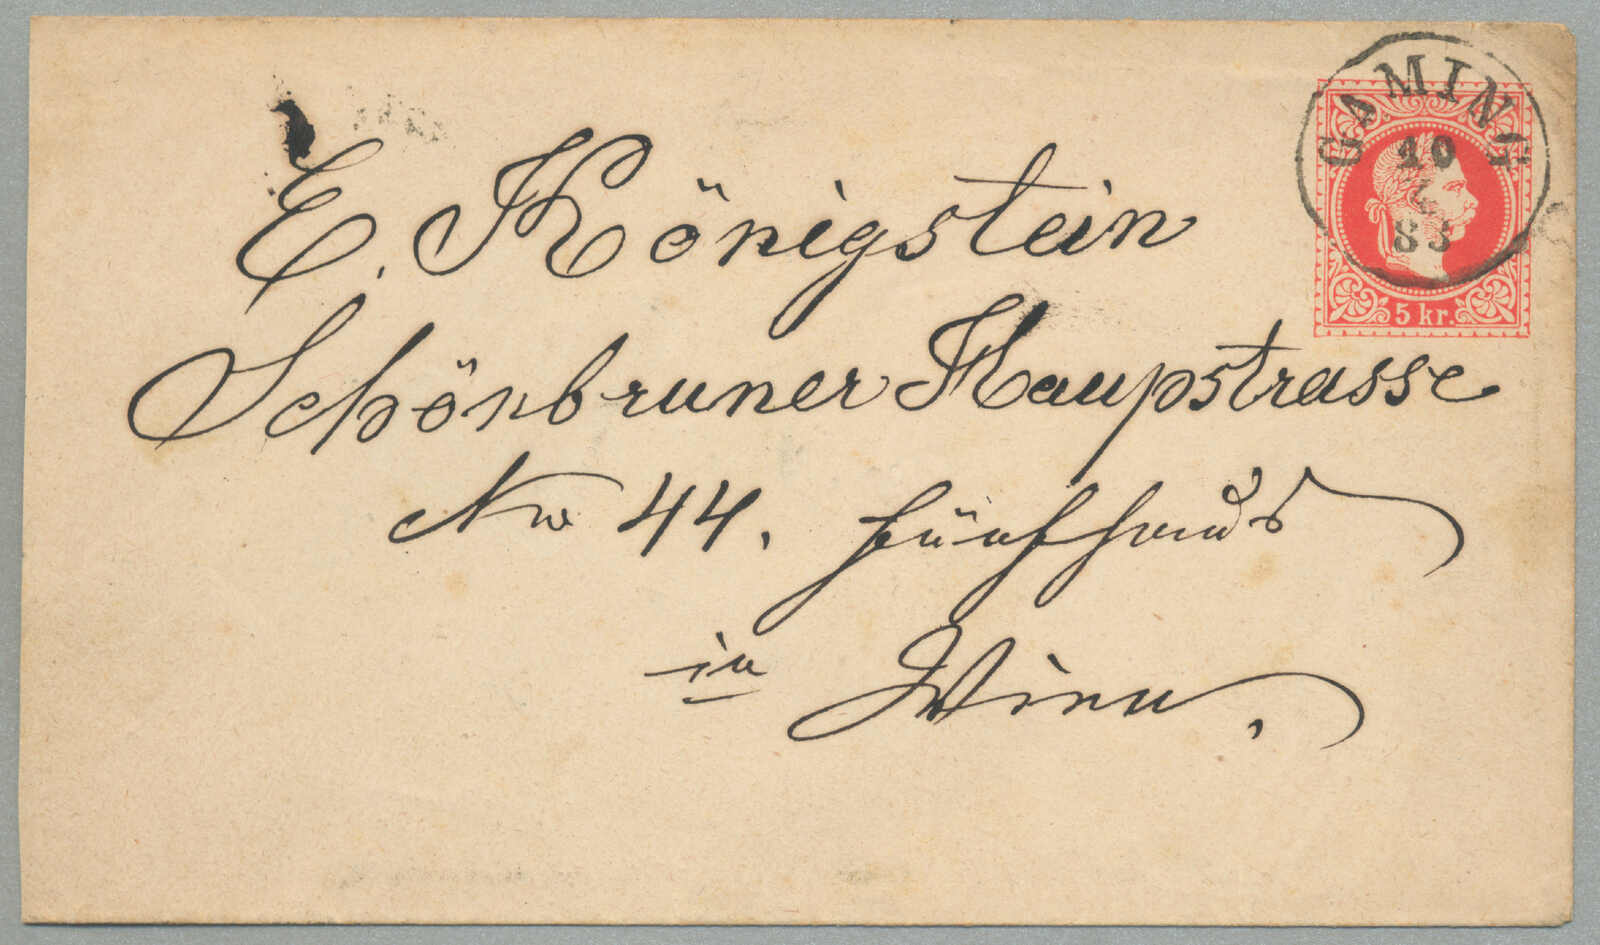 GAMING
10
83
5 kr.
E. Königstein
Schönbruner Haupstrasse
No 44. Fünfhaus
in Wien.